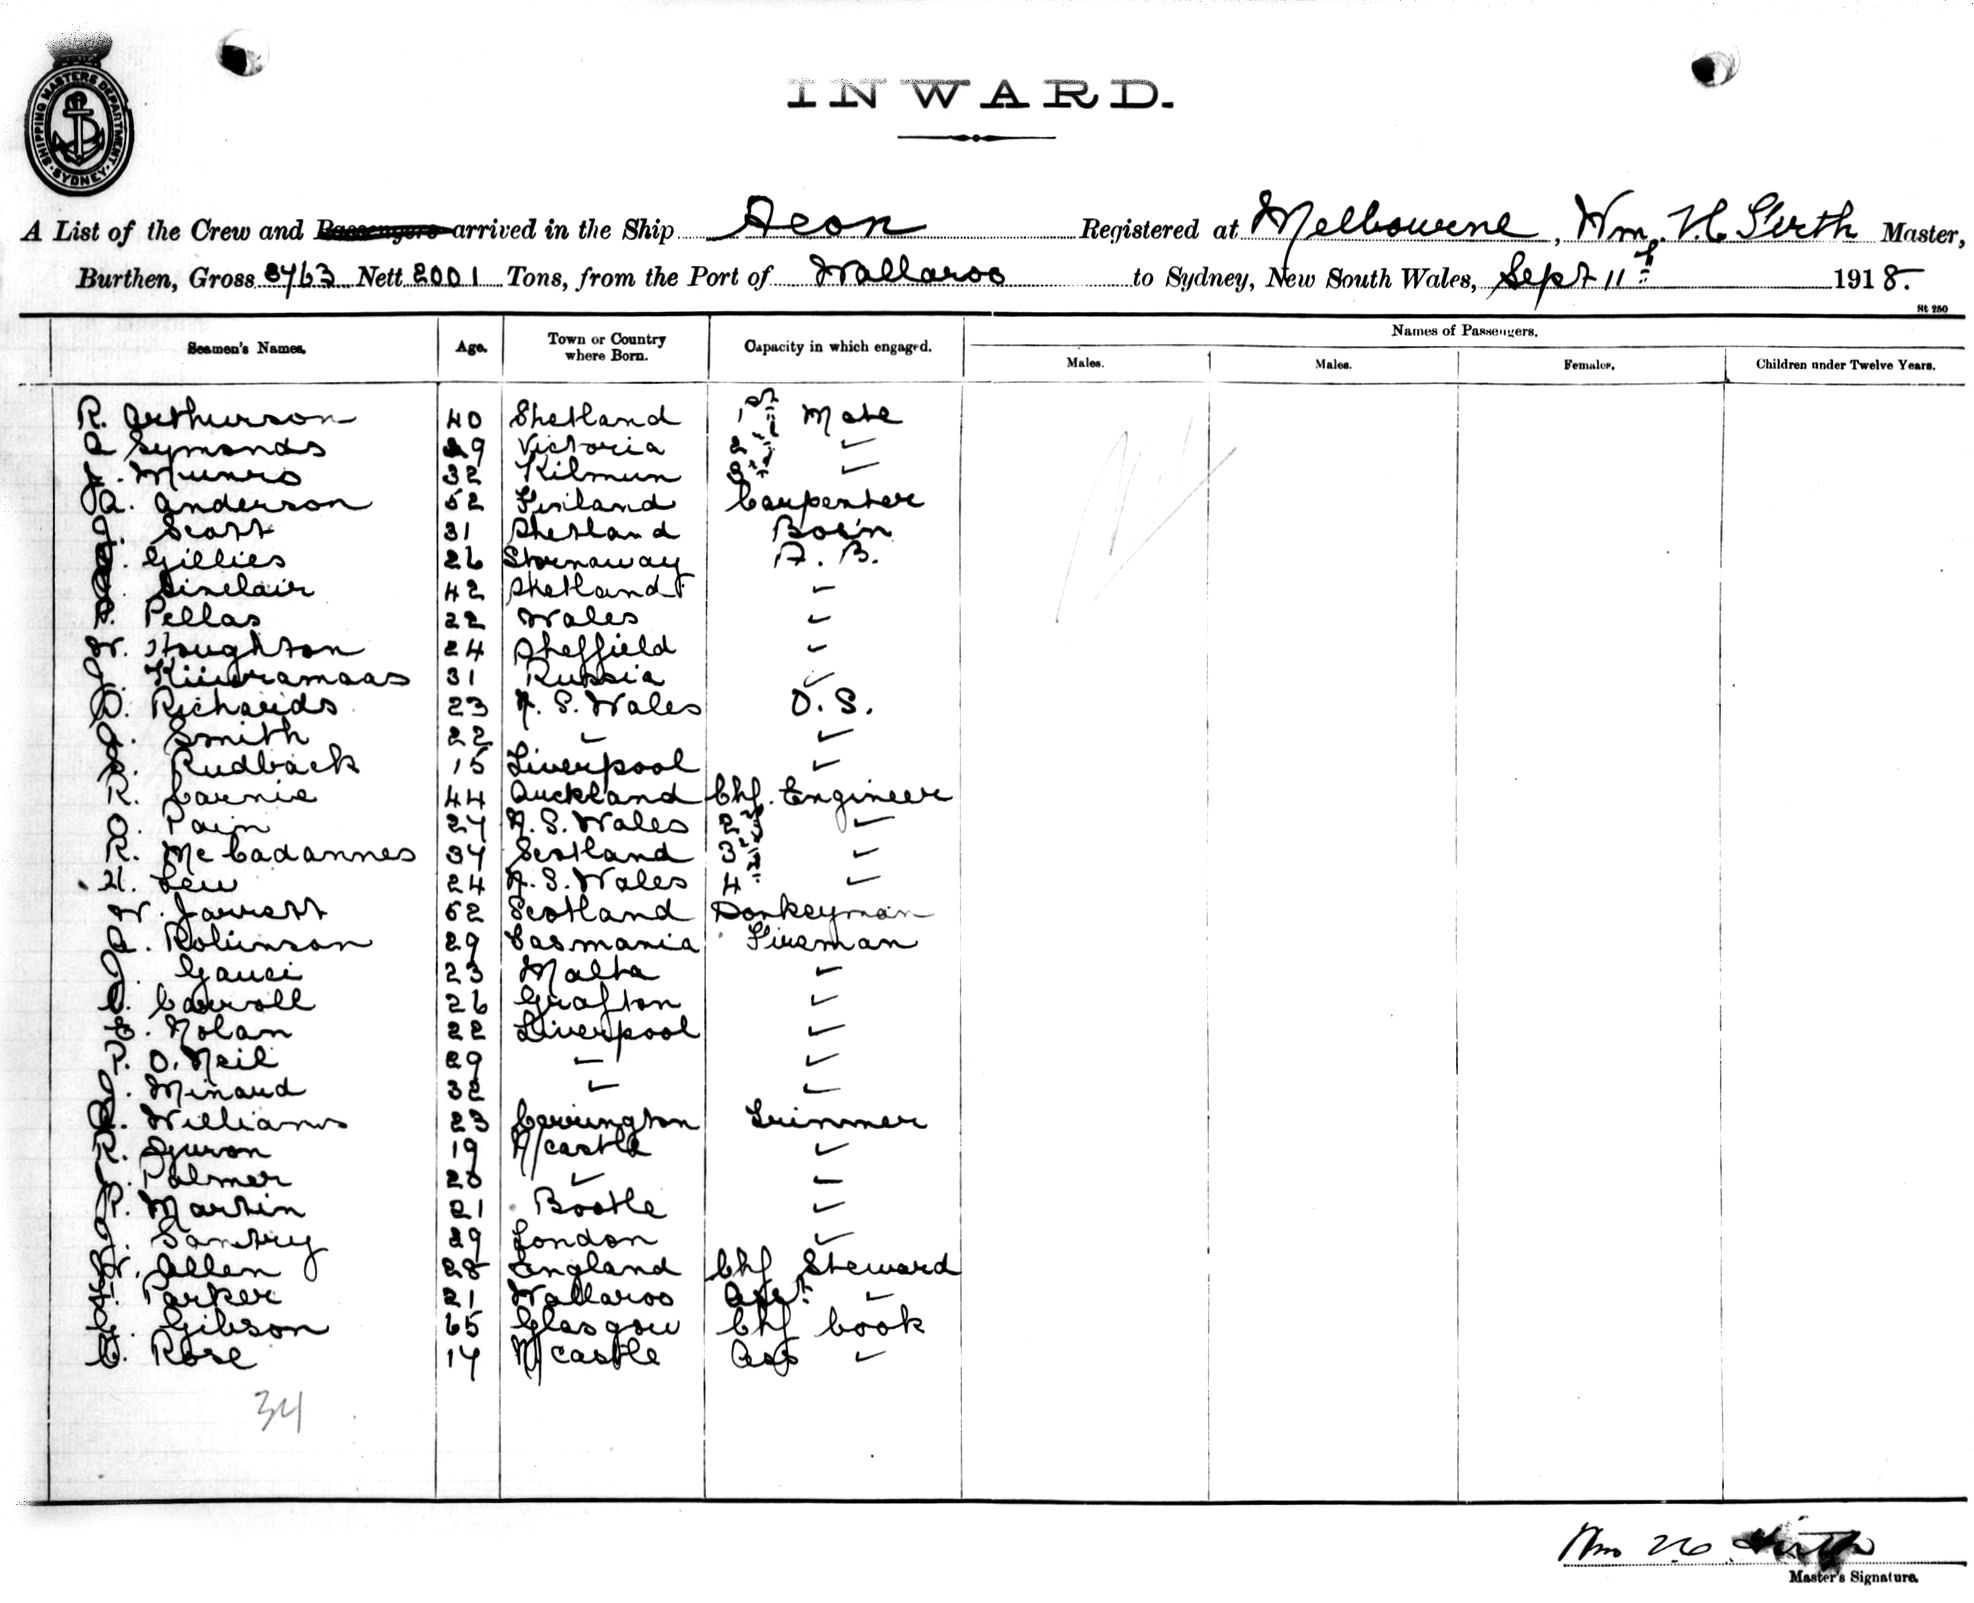 SHIPPING MASTERS DEPARTMENT · SYDNEY ·
INWARD.
A List of the Crew and Passengers arrived in the Ship Aeon Registered at Melbourne, Wm. H. Firth Master,
Burthen, Gross 3763 Nett 2001 Tons, from the Port of Wallaroo to Sydney, New South Wales, Sept 11th 1918.
St 250
Seamen's Names. Age. Town or Country where Born. Capacity in which engaged. Names of Passengers.
Males. Males. Females. Children under Twelve Years.
R. Arthurson 40 Shetland 1st Mate
A Symonds 29 Victoria 2nd ✓
J. Munro 32 Kilmun 3rd ✓
A. Anderson 52 Finland Carpenter
J. Scott 31 Shetland Bos'n
Gillies 26 Stornaway A. B.
Sinclair 42 Shetland ✓
Pellas 22 Wales ✓
W. Houghton 24 Sheffield ✓
J. 31 Russia ✓
D. Richards 23 N. S. Wales O. S.
Smith 22 ✓ ✓
Rudback 15 Liverpool ✓
R. Carnie 44 Auckland Chf. Engineer
Pain 27 N. S. Wales 2nd ✓
R. McCadannes 37 Scotland 3rd ✓
H. Lew 24 N. S. Wales 4 ✓
W. Jarrett 52 Scotland Donkeyman
A. Robinson 29 Tasmania Fireman
J. Gauci 23 Malta ✓
C. Carroll 26 Grafton ✓
E. Nolan 22 Liverpool ✓
P. O. Neil 29 ✓ ✓
J. Minaud 32 ✓ ✓
Williams 23 Carrington Trimmer
R. Guron 19 N/castle ✓
Palmer 20 ✓ ✓
P. Martin 21 Bootle ✓
J. Santry 29 London ✓
W. Allen 28 England Chf Steward
Parker 21 Wallaroo Asst ✓
Gibson 65 Glasgow Chf Cook
C. Rose 17 N/castle Ass ✓
34
Wm H. Firth
Master's Signature.